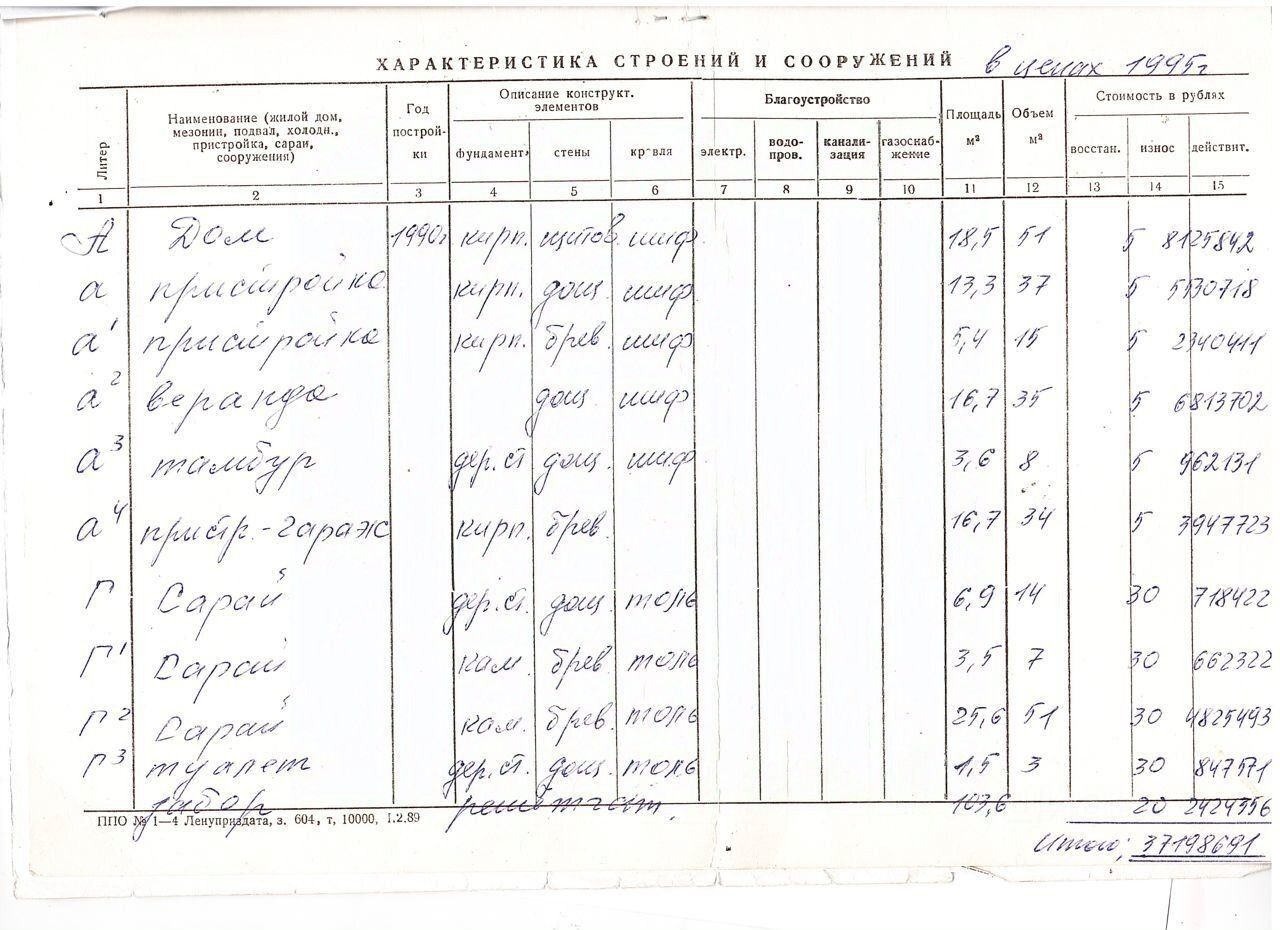 ХАРАКТЕРИСТИКА СТРОЕНИЙ И СООРУЖЕНИЙ в ценах 1995г
Литер
Наименование (жилой дом, мезонин, подвал, холодн., пристройка, сараи, сооружения)
Год построй-ки
Описание конструкт. элементов
фундамент стены кровля
Благоустройство
электр. водо-пров. канали-зация газоснаб-жение
Площадь м²
Объем м³
Стоимость в рублях
восстан. износ действит.
1 2 3 4 5 6 7 8 9 10 11 12 13 14 15
А Дом 1990г кирп. щитов. шиф. 18,5 51 5 8125842
а пристройка кирп. дощ. шиф. 13,3 37 5 5530718
а1 пристройка кирп. брев. шиф 5,4 15 5 2340411
а2 веранда дощ. шиф 16,7 35 5 6813702
а3 тамбур дер.ст дощ. шиф 3,6 8 5 962131
а4 пристр.-гараж кирп. брев. 16,7 34 5 3947723
Г Сарай дер.ст. дощ. толь 6,9 14 30 718422
Г1 Сарай кам. брев. толь 3,5 7 30 662322
Г2 Сарай кам. брев. толь 25,6 51 30 4825493
Г3 туалет дер.ст. дощ. толь 1,5 3 30 847571
забор решётчат. 103,6 20 2424356
ППО № 1—4 Ленуприздата, з. 604, т, 10000, 1.2.89
Итого: 37198691